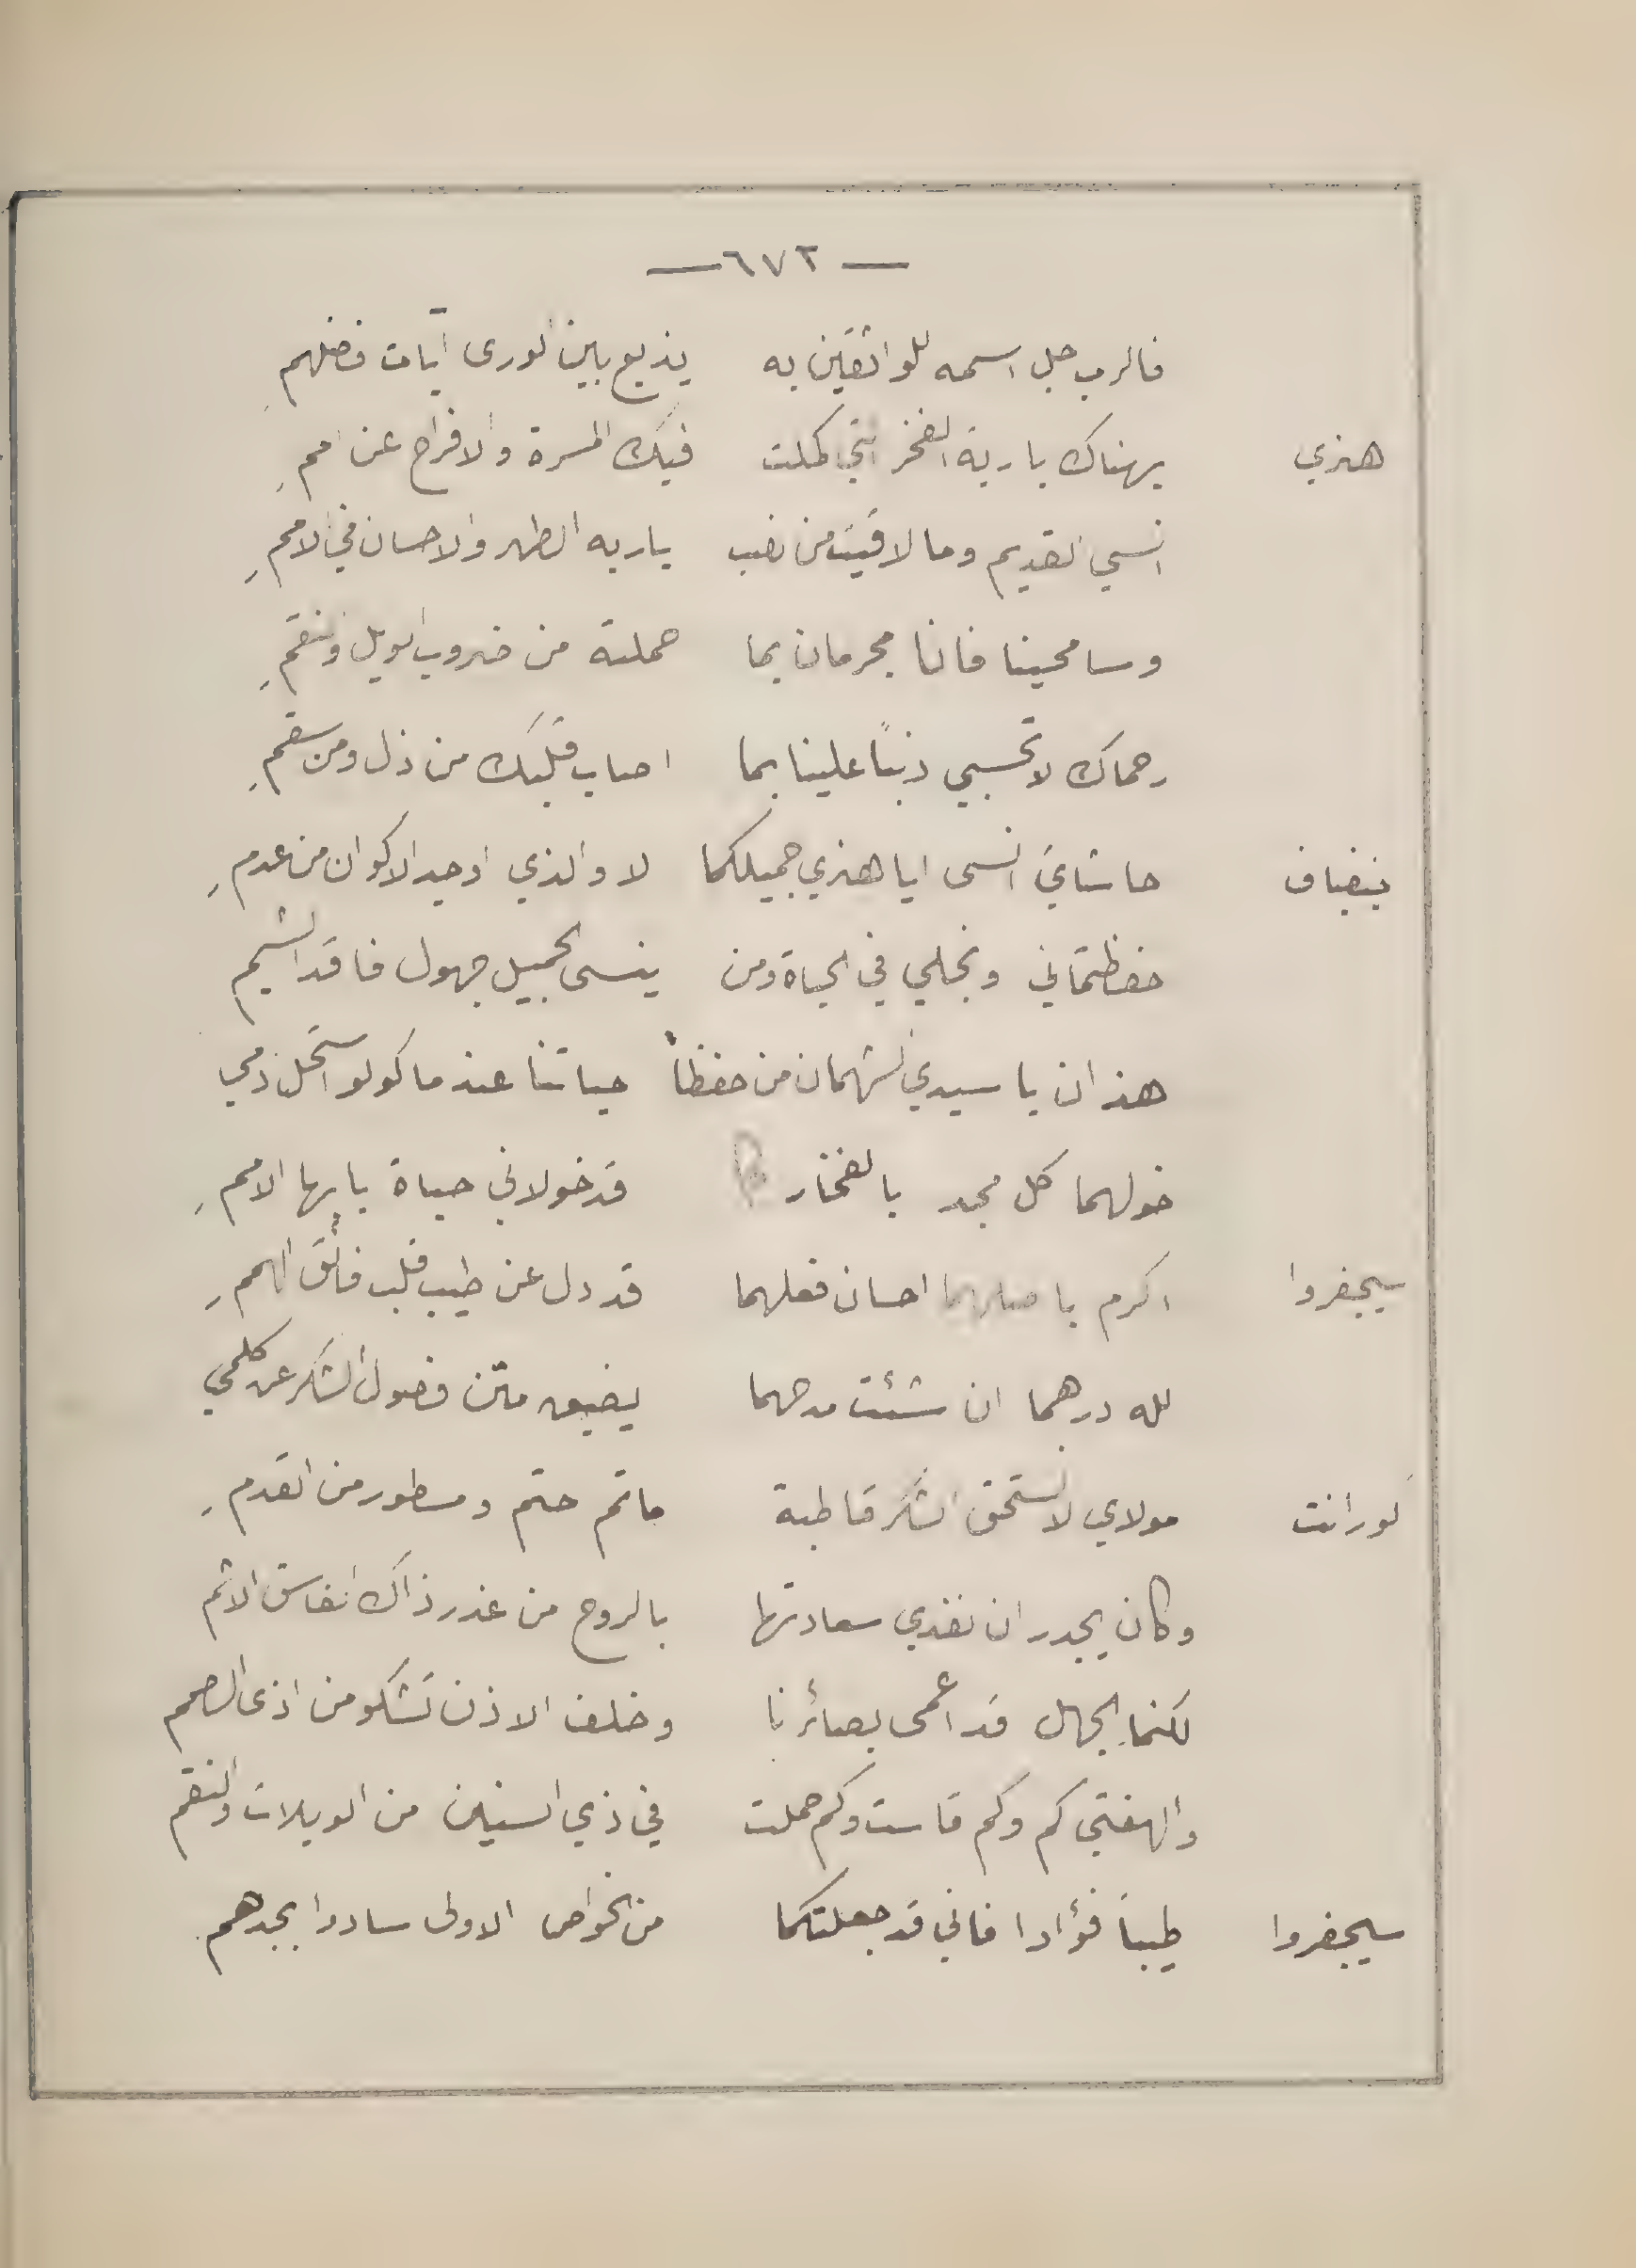 — ٦٧٢ —
فالرب جل اسمه للواثقين به يذيع بين الورى آيات فضلهمِ
هنري يهناك يا ربة الفخر التي كملت فيك المسرة والافراح عن اممِ
انسي القديم وما لاقيت من نصب يا ربه الطهر والاحسان في الاممِ
وسامحينا فانا مجرمان بما حملته من ضروب الويل والنقمِ
رحماك لا تحسبي ذنبًا علينا بما اصاب قلبك من ذل ومن سقمِ
حاشاي انسى ايا هنري جميلكما لا والذي اوجد الاكوان من عدمِ
حفظتماني ونجلي في الحياة ومن ينسى الجميل جهول فاقد الشيم
هذان يا سيدي الشهمان من حفظا حياتنا عندما كولو استحل دمي
خولهما كل مجد بالفخار قد خولاني حياة يا بها الاممِ
سيجفروا اكرم باصلهما احسان فعلهما قد دل عن طيب قلب فائق الهممِ
لله درهما ان شئت مدحهما يضيق متن فصول الشكر عن كلمي
لورانت مولاي لا نستحق الشكر قاطبة ماتم حتم ومسطور من القدمِ
وكان يجدر ان نفدي سعادتها بالروح من غدر ذاك الفاسق الاثم
لكنما الجهل قد اعمى بصائرنا وخلف الاذن تشكو من اذى الصمم
والهفتي كم وكم قاست وكم حملت في ذي السنين من الويلات والنقم
سيجفروا طيبا فؤادا فاني قد جعلتكما من الخواص الاولى سادوا بمجدهم